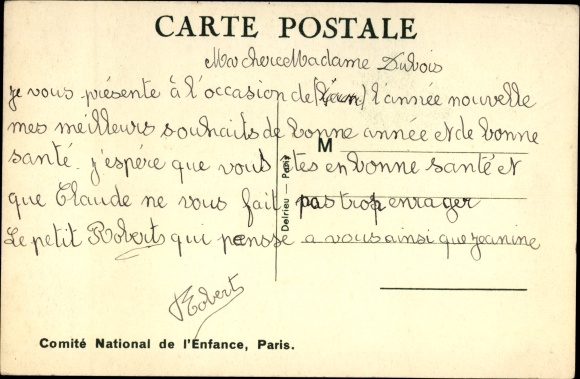 CARTE POSTALE
Ma chere Madame Dubois
je vous présente à l'occasion de () l'année nouvelle
mes meilleurs souhaits de bonne année et de bonne
santé. j'espére que vous etes en bonne santé et
que Claude ne vous fait pas trop enrager
Le petit Roberts qui pensse a vous ainsi que Jeanine
Robert
M
Delrieu — Paris
Comité National de l'Enfance, Paris.